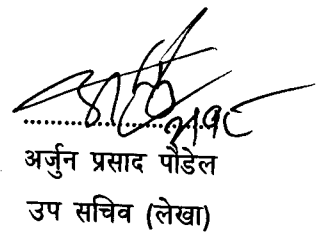 ........................
अर्जुन प्रसाद पौडेल
उप सचिव (लेखा)